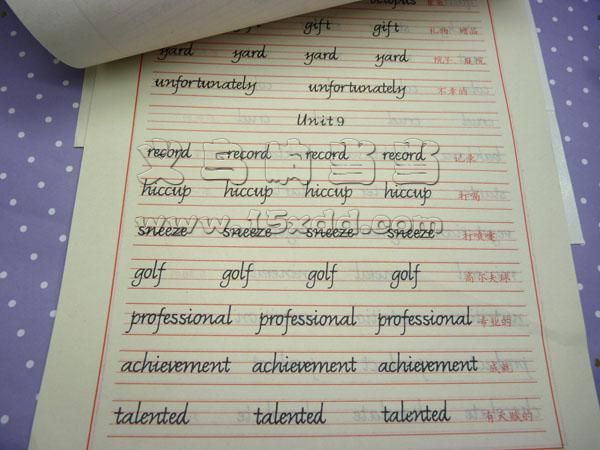 octopus
gift gift 礼物 赠品
yard yard yard yard 院子 庭院
unfortunately unfortunately 不幸的
Unit 9
record record record record 记录
hiccup hiccup hiccup hiccup 打嗝
www.15xdd.com
sneeze sneeze sneeze sneeze 打喷嚏
golf golf golf golf 高尔夫球
professional professional professional 专业的
achievement achievement achievement 成就
talented talented talented 有天赋的